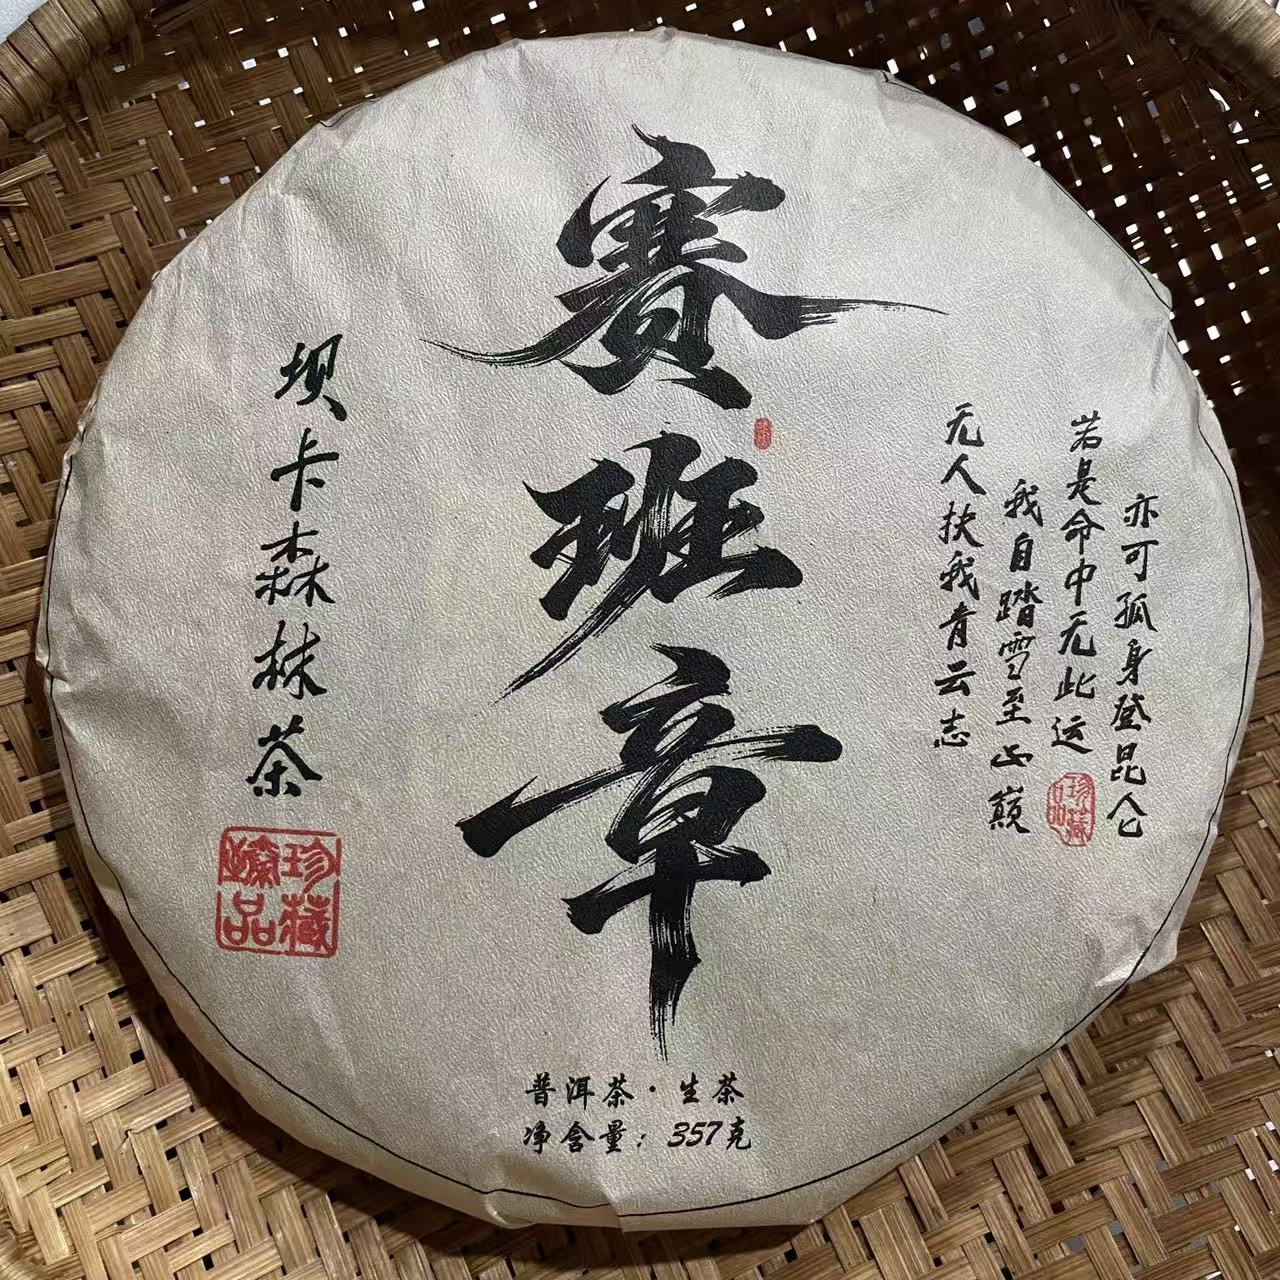 赛班章
坝卡森林茶
珍藏
臻品
无人扶我青云志
我自踏雪至山巅
若是命中无此运
亦可孤身登昆仑
珍藏
品
普洱茶·生茶
净含量：357克